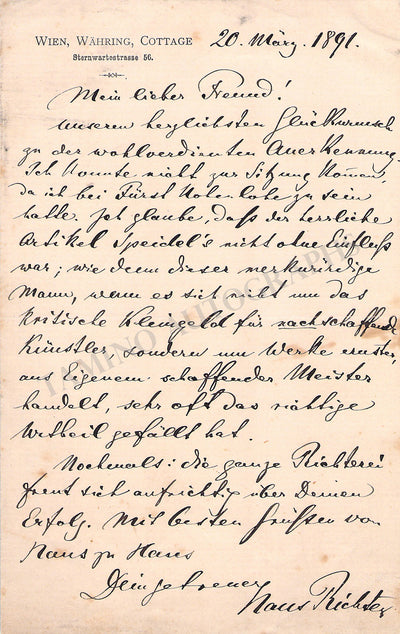 Wien, Währing, Cottage
Sternwartestrasse 56.
20. März. 1891.
Mein lieber Freund!
Unseren herzlichsten Glückwunsch
zu der wohlverdienten Anerkennung.
Ich konnte nicht zur Sitzung kommen,
da ich bei Fürst Hohenlohe zu sein
hatte. Ich glaube, daß der herrliche
Artikel Speidel's nicht ohne Einfluß
war; wie denn dieser merkwürdige
Mann, wenn es sich nicht um das
kritische Kleingeld für nachschaffende
Künstler, sondern um Werke ernster,
aus Eigenem schaffender Meister
handelt, sehr oft das richtige
Urtheil gefällt hat.
Nochmals: die ganze Richterei
freut sich aufrichtig über Deinen
Erfolg. Mit besten Grüßen von
Haus zu Haus
Dein getreuer
Hans Richter
TAMINO AUTOGRAPHS